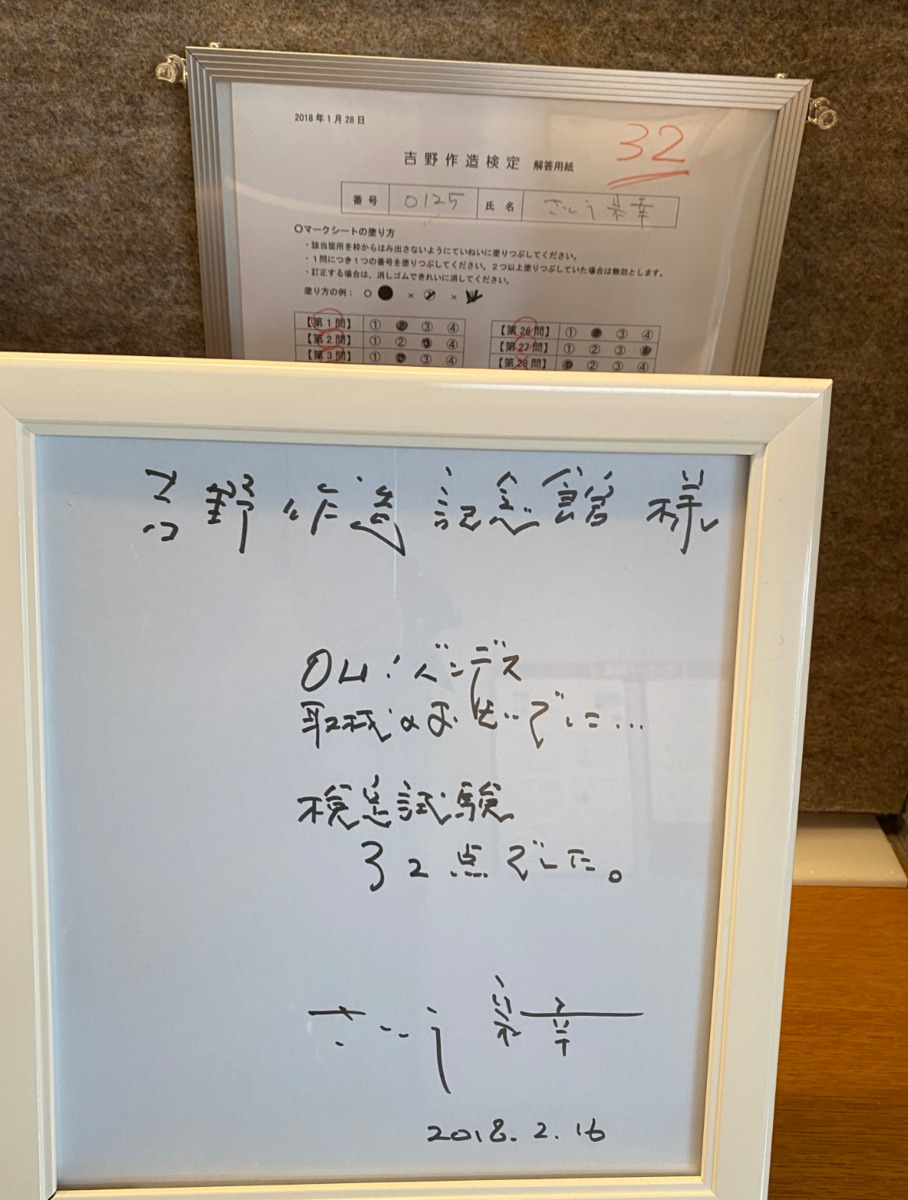 2018年1月28日
32
吉野作造検定 解答用紙
番号 0125 氏名 さとう宗幸
〇マークシートの塗り方
・該当箇所を枠からはみ出さないようにていねいに塗りつぶしてください。
・1問につき1つの番号を塗りつぶしてください。2つ以上塗りつぶしていた場合は無効とします。
・訂正する場合は、消しゴムできれいに消してください。
塗り方の例：○ ● × ×
【第1問】 ① ② ③ ④
【第2問】 ① ② ③ ④
【第3問】 ① ② ③ ④
【第26問】 ① ② ③ ④
【第27問】 ① ② ③ ④
【第28問】 ① ② ③ ④
吉野作造記念館 様
OH!バンデス
取材のおかげでに…
検定試験
32点でした。
さとう宗幸
2018.2.16